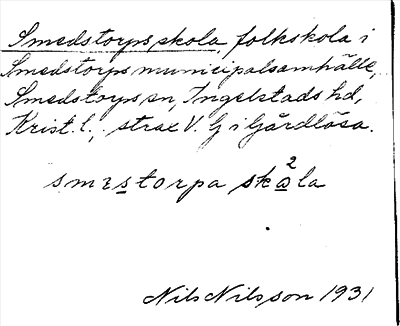 Smedstorps skola, folkskola i
Smedstorps municipalsamhälle,
Smedstorps sn, Ingelstads hd,
Krist. l., strax V. G i Gårdlösa.
smɛstorpa skå²la
Nils Nilsson 1931